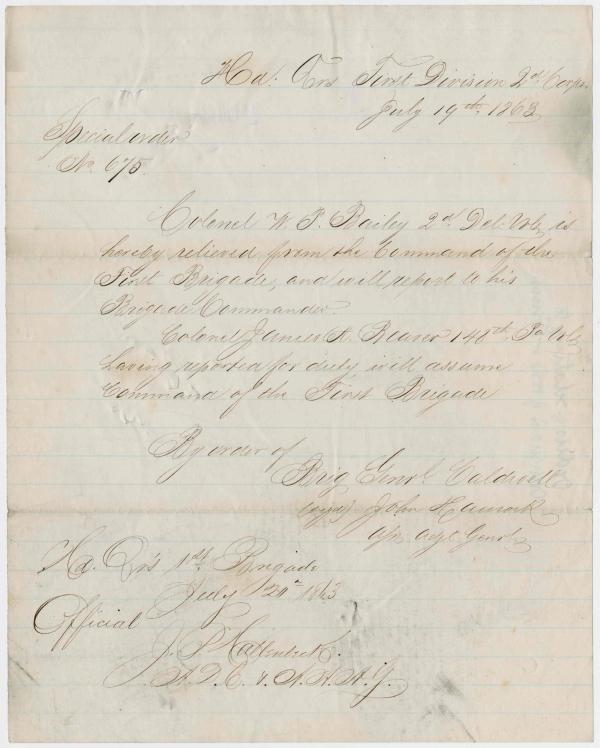 Hd. Qrs First Division 2d Corps.
July 19th 1863
Special order
No. 675.
Colonel W. P. Bailey 2d Del. Vols, is
hereby relieved from the Command of the
First Brigade, and will report to his
Brigade Commander.
Colonel James A. Beaver 148th Pa Vols
having reported for duty will assume
Command of the First Brigade
By order of
Brig Genrl Caldwell
John Hancock
Asst Adjt Genrl
Hd. Qrs 1st Brigade
July 20th 1863
Official
J. P.
A. D. C. & A. A. A. G.